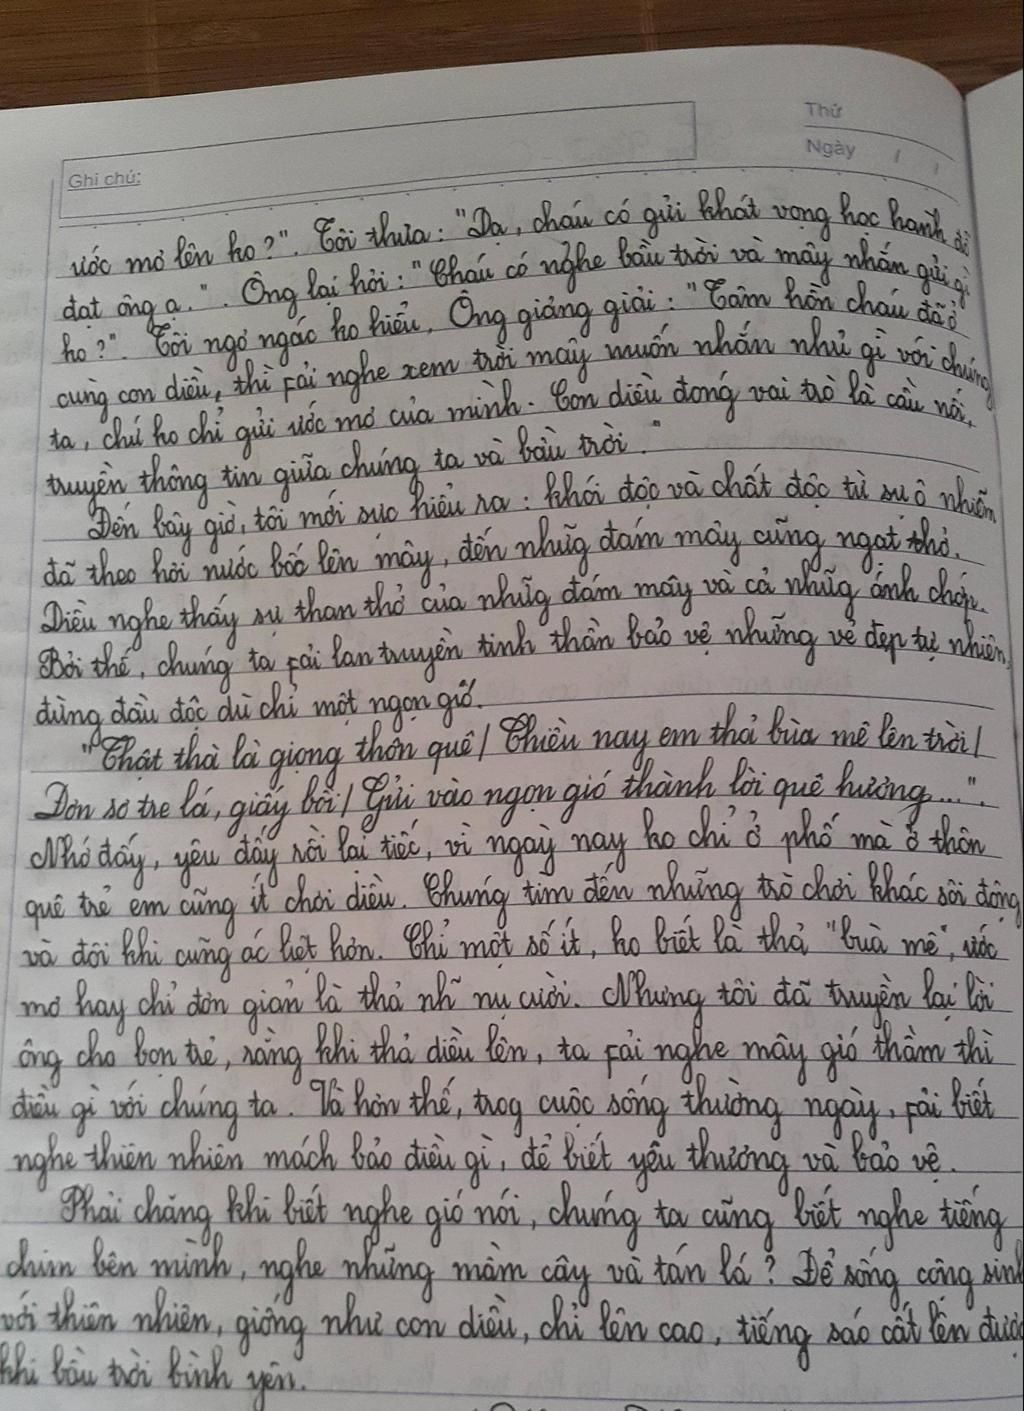 Thứ
Ngày / /
Ghi chú:
ước mơ lên ko?". Tôi thưa: "Dạ, cháu có gửi khát vọng học hành đỗ
đạt ông ạ.". Ông lại hỏi: "Cháu có nghe bầu trời và mây nhắn gửi gì
ko?". Tôi ngơ ngác ko hiểu, Ông giảng giải: "Tâm hồn cháu đã ở
cùng con diều, thì fải nghe xem trời mây muốn nhắn nhủ gì với chúng
ta, chứ ko chỉ gửi ước mơ của mình. Con diều đóng vai trò là cầu nối,
truyền thông tin giữa chúng ta và bầu trời."
Đến bây giờ, tôi mới sực hiểu ra: khói độc và chất độc từ sự ô nhiễm
đã theo hơi nước bốc lên mây, đến nhữg đám mây cũng ngạt thở.
Diều nghe thấy sự than thở của nhữg đám mây và cả nhữg ánh chớp.
Bởi thế, chúng ta fải lan truyền tinh thần bảo vệ những vẻ đẹp tự nhiên,
đừng đầu độc dù chỉ một ngọn gió.
"Thật thà là giọng thôn quê/ Chiều nay em thả bùa mê lên trời/
Đơn sơ tre lá, giấy bồi/ Gửi vào ngọn gió thành lời quê hương...".
Nhớ đấy, yêu đấy rồi lại tiếc, vì ngày nay ko chỉ ở phố mà ở thôn
quê trẻ em cũng ít chơi diều. Chúng tìm đến những trò chơi khác sôi động
và đôi khi cũng ác liệt hơn. Chỉ một số ít, ko biết là thả "bùa mê", ước
mơ hay chỉ đơn giản là thả nhĩ nụ cười. Nhưng tôi đã truyền lại lời
ông cho bọn trẻ, rằng khi thả diều lên, ta fải nghe mây gió thầm thì
điều gì với chúng ta. Và hơn thế, trog cuộc sống thường ngày, fải biết
nghe thiên nhiên mách bảo điều gì, để biết yêu thương và bảo vệ.
Phải chăng khi biết nghe gió nói, chúng ta cũng biết nghe tiếng
chim bên mình, nghe những mầm cây và tán lá? Để sống cộng sinh
với thiên nhiên, giống như con diều, chỉ lên cao, tiếng sáo cất lên được
khi bầu trời bình yên.